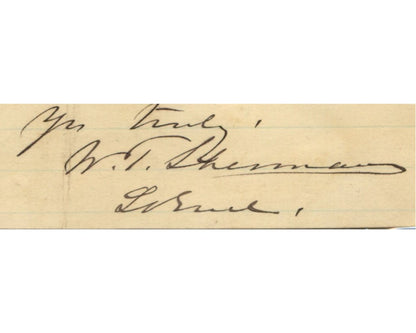 Yrs truly,
W. T. Sherman
General.